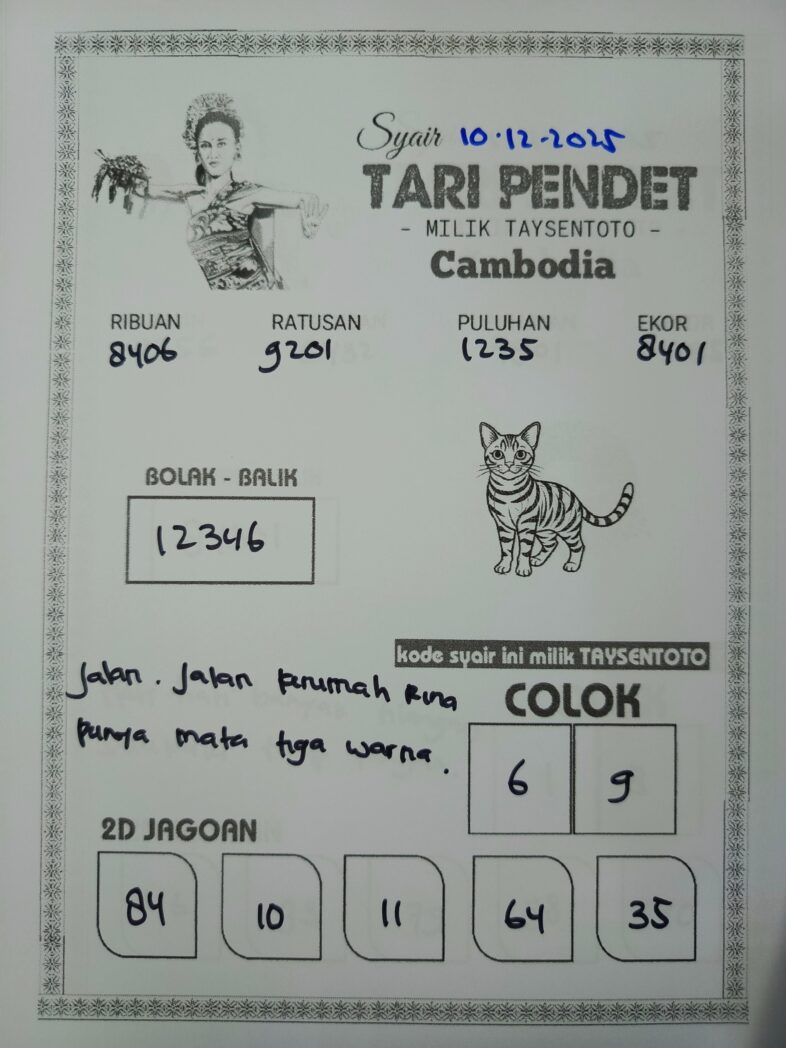 Syair 10.12.2025
TARI PENDET
- MILIK TAYSENTOTO -
Cambodia
RIBUAN RATUSAN PULUHAN EKOR
8406 9201 1235 8401
BOLAK - BALIK
12346
kode syair ini milik TAYSENTOTO
Jalan. Jalan kerumah Rina
punya mata tiga warna.
COLOK
6 9
2D JAGOAN
84 10 11 64 35